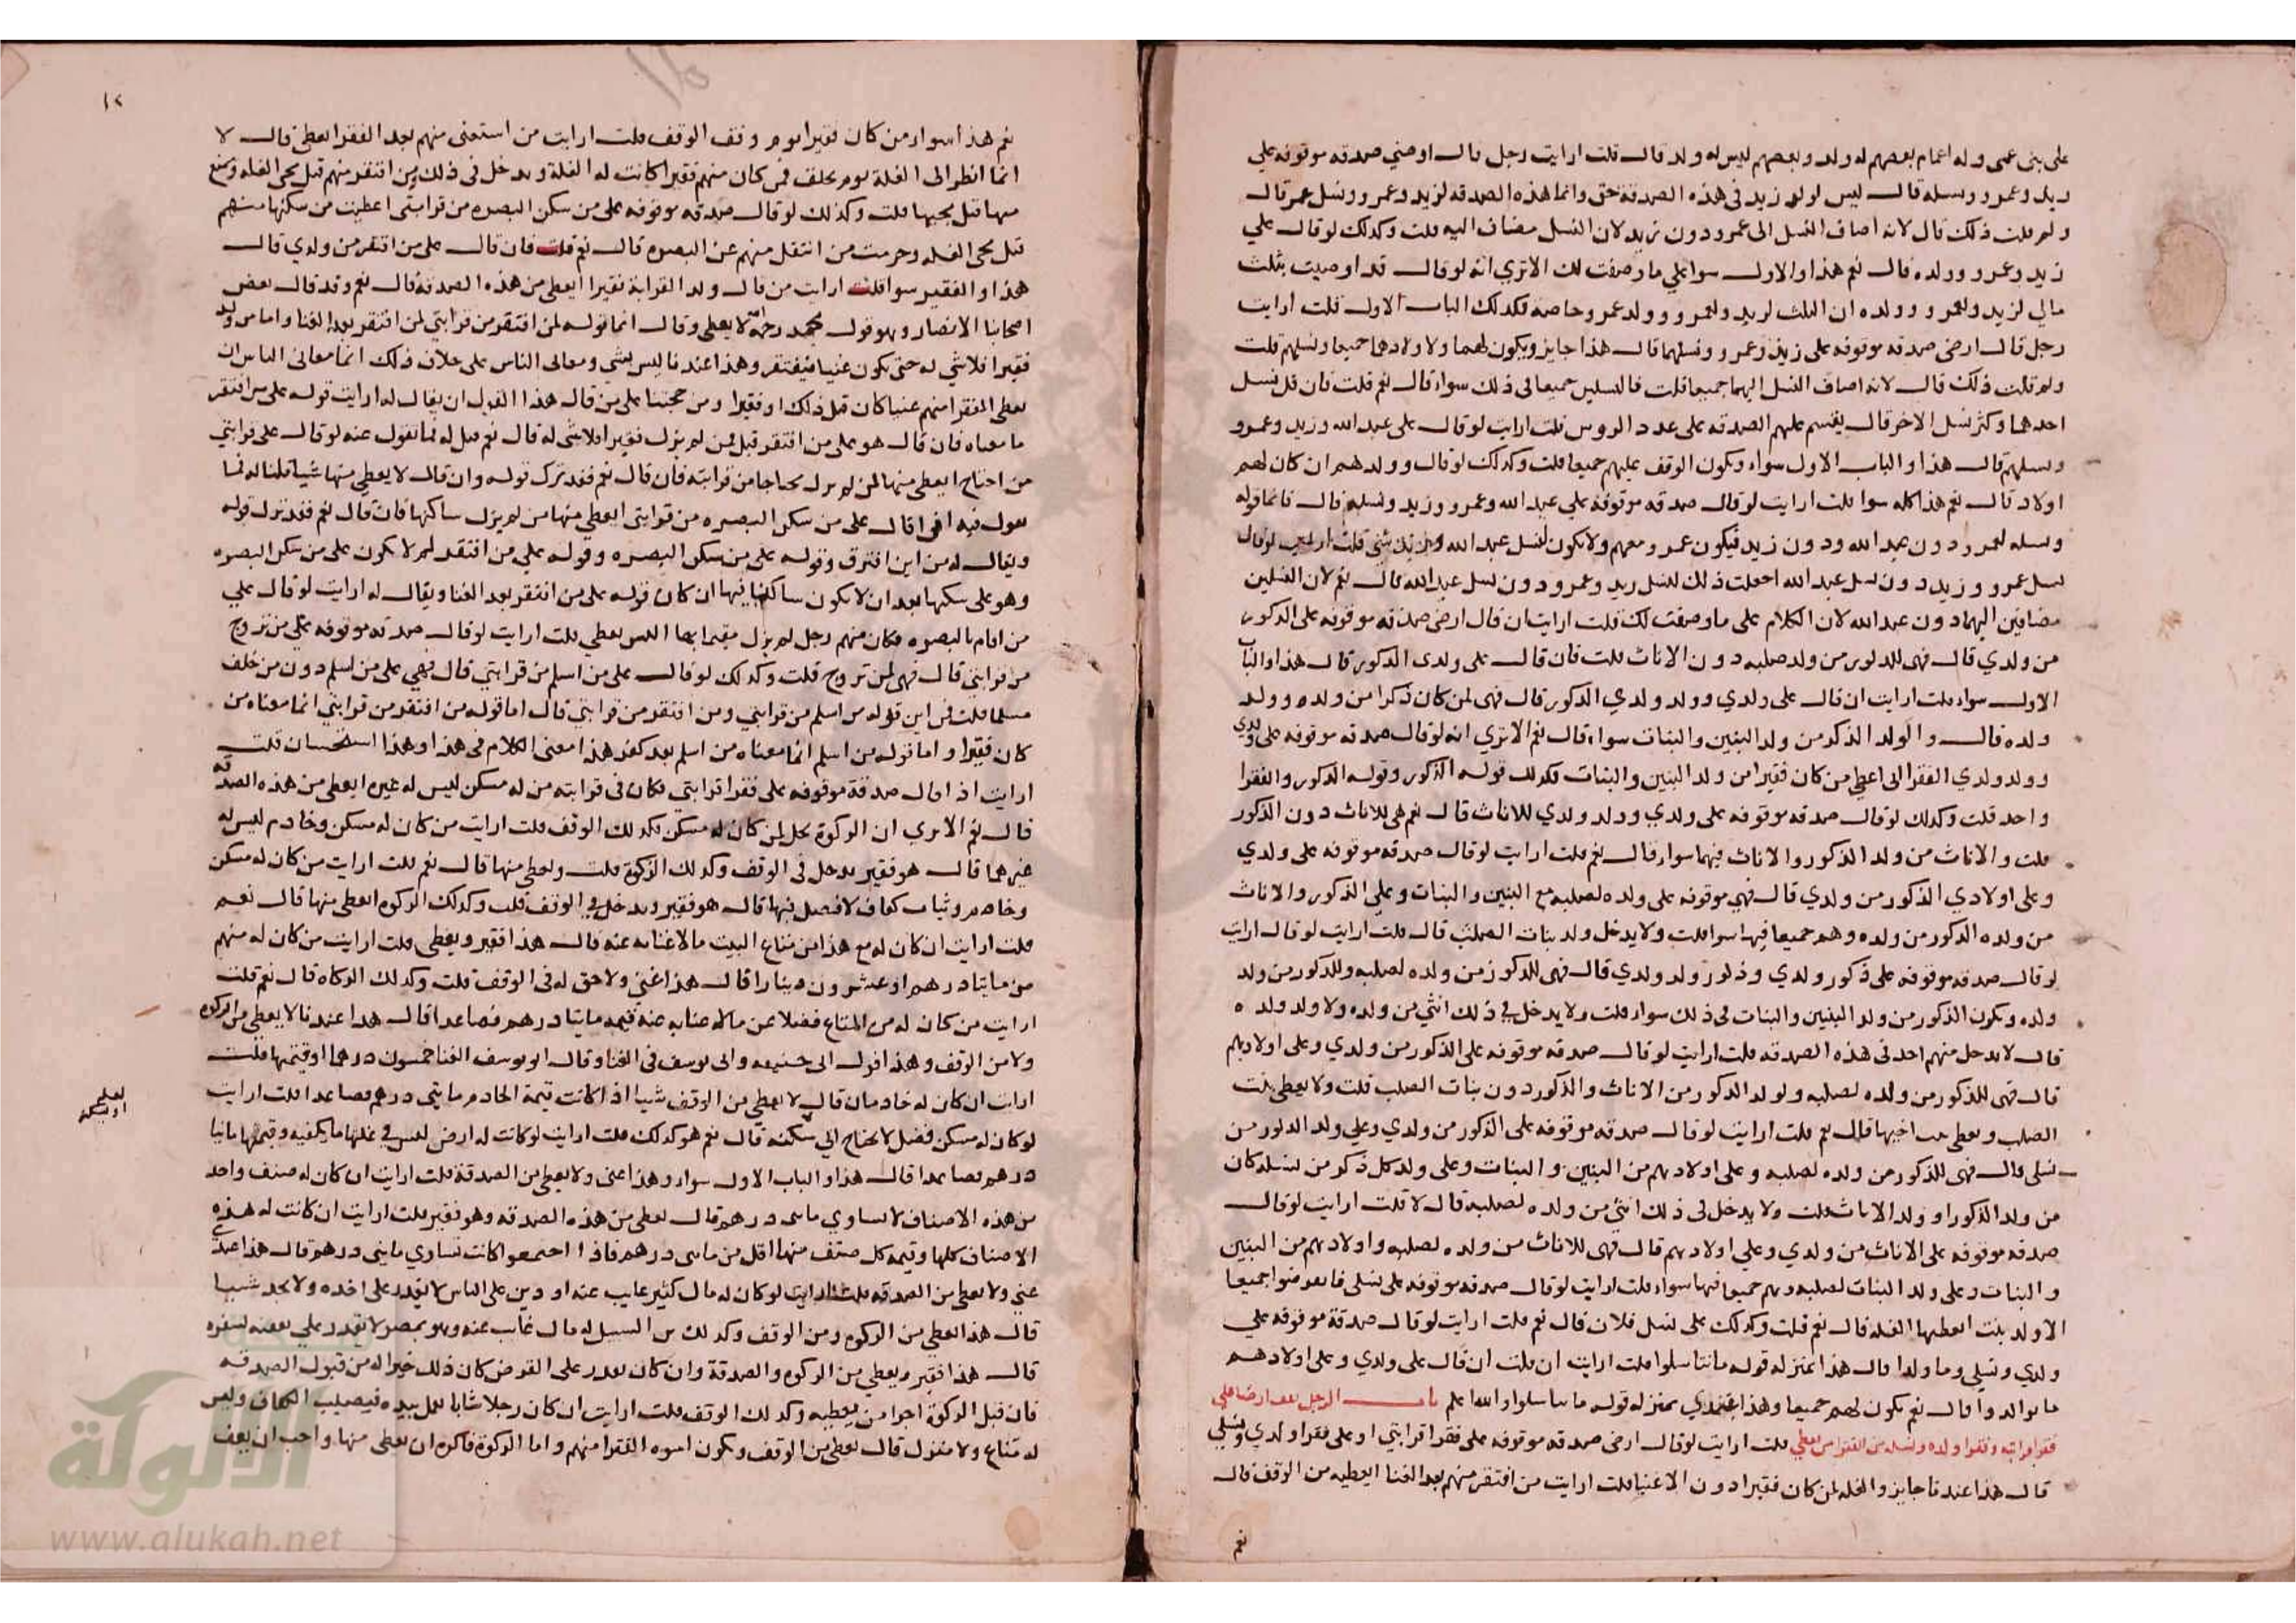 على بنى عمى وله اعمام بعضهم له ولد وبعضهم ليس له ولد قال قلت ارايت رجل قال ارضي صدقه موقوفه علي
زيد وعمرو ونسله قال ليس لولد زيد فى هذه الصدقة حق وانما هذه الصدقه لزيد وعمرو ونسل عمر قال
ولم قلت ذلك قال لانه اضاف النسل الى عمرو دون زيد لان النسل مضاف اليه قلت وكذلك لو قال علي
زيد وعمرو وولده قال نعم هذا والاول سوا علي ما وصفت لك الا ترى انه لو قال قد اوصيت بثلث
مالي لزيد ولعمرو وولده ان الثلث لزيد ولعمرو وولد عمرو خاصه فكذلك الباب الاول قلت ارايت
رجل قال ارضى صدقه موقوفه على زيد وعمرو ونسلهما قال هذا جايز ويكون لهما ولاولادهما جميعا ونسلهم قلت
ولم قلت ذلك قال لانه اضاف النسل اليهما جميعا قلت فالنسلين جميعا فى ذلك سواء قال نعم قلت فان قل نسل
احدهما وكثر نسل الاخر قال يقسم عليهم الصدقه على عدد الروس قلت ارايت لو قال على عبد الله وزيد وعمرو
ونسلهم قال هذا والباب الاول سواء ويكون الوقف عليهم جميعا قلت وكذلك لو قال وولدهم ان كان لهم
اولاد قال نعم هذا كله سوا قلت ارايت لو قال صدقه موقوفه علي عبد الله وعمرو وزيد ونسله قال فانما قوله
ونسله لعمرو دون عبد الله ودون زيد فيكون عمرو معهم ولا يكون لنسل عبد الله وزيد شي قلت ارايت لو قال
نسل عمرو وزيد دون نسل عبد الله اجعلت ذلك لنسل زيد وعمرو دون نسل عبد الله قال نعم لان النسلين
مضافين اليهما دون عبد الله لان الكلام على ما وصفت لك قلت ارايت ان قال ارضى صدقه موقوفه على الذكور
من ولدي قال فهى للذكور من ولد صلبه دون الاناث قلت فان قال على ولدى الذكور قال هذا والباب
الاول سواء قلت ارايت ان قال على ولدي وولد ولدي الذكور قال فهى لمن كان ذكرا من ولده وولد
ولده قال والولد الذكر من ولد البنين والبنات سواء قال نعم الا تري انه لو قال صدقه موقوفه على ولدى
وولد ولدي الفقرا انى اعطى من كان فقيرا من ولد البنين والبنات فكذلك قوله الذكور وقوله الذكور والفقرا
واحد قلت وكذلك لو قال صدقه موقوفه على ولدي وولد ولدي للاناث قال نعم هى للاناث دون الذكور
قلت والاناث من ولد الذكور والاناث فيهما سواء قال نعم قلت ارايت لو قال صدقه موقوفه على ولدي
وعلى اولادي الذكور من ولدي قال فهي موقوفه على ولده لصلبه مع البنين والبنات وعلي الذكور والاناث
من ولده الذكور من ولده وهم جميعا فيها سوا قلت ولا يدخل ولد بنات الصلب قال قلت ارايت لو قال ارايت
لو قال صدقه موقوفه على ذكور ولدي وذكور ولد ولدي قال فهى للذكور من ولده لصلبه وللذكور من ولد
ولده ويكون الذكور من ولد البنين والبنات فى ذلك سواء قلت ولا يدخل في ذلك انثى من ولده ولا ولد ولده
قال لا يدخل منهم احد فى هذه الصدقه قلت ارايت لو قال صدقه موقوفه على الذكور من ولدي وعلى اولادهم
قال فهى للذكور من ولده لصلبه ولولد الذكور من الاناث والذكور دون بنات الصلب قلت ولا يعطى بنت
الصلب ويعطى بنت اخيها قال نعم قلت ارايت لو قال صدقه موقوفه على الذكور من ولدي وعلي ولد الذكور من
نسلى قال فهى للذكور من ولده لصلبه وعلى اولادهم من البنين والبنات وعلى ولد كل ذكر من نسله كان
من ولد الذكور او ولد الاناث قلت ولا يدخل فى ذلك انثى من ولده لصلبه قال لا قلت ارايت لو قال
صدقه موقوفه على الاناث من ولدي وعلي اولادهم قال فهى للاناث من ولده لصلبه واولادهم من البنين
والبنات وعلى ولد البنات لصلبه وهم جميعا فيها سواء قلت ارايت لو قال صدقه موقوفه على نسلى فانقرضوا جميعا
الا ولد بنت اتعطيها الغله قال نعم قلت وكذلك على نسل فلان قال نعم قلت ارايت لو قال صدقة موقوفه علي
ولدي ونسلي وما ولدا قال هذا بمنزله قوله ما تناسلوا قلت ارايت ان قلت ان قال على ولدي وعلى اولادهم
ما توالدوا قال نعم يكون لهم جميعا وهذا عندي بمنزله قوله ما تناسلوا والله اعلم باب الرجل يقف ارضا على
فقرا قرابته وفقرا ولده ونسله من الفقرا من يعطى قلت ارايت لو قال ارضى صدقه موقوفه على فقرا قرابتي او على فقرا ولدي ونسلي
قال هذا عندنا جايز والغله لمن كان فقيرا دون الاغنيا قلت ارايت من افتقر منهم بعد الغنا ايعطيه من الوقف قال
نعم
١٢
نعم هذا سواء ومن كان فقيرا يوم وقف الوقف قلت ارايت من استغنى منهم بعد الفقر ايعطى قال لا
انما انظر الى الغلة يوم تخلف فمن كان منهم فقيرا كانت له الغلة ويدخل فى ذلك من افتقر منهم قبل مجى الغله ويمنع
منها قبل مجيها قلت وكذلك لو قال صدقه موقوفه على من سكن البصره من قرابتى اعطيت من سكنها منهم
قبل مجى الغله وحرمت من انتقل منهم عن البصره قال نعم قلت فان قال على من افتقر من ولدي قال
هذا والفقير سوا قلت ارايت من قال ولد القرابة فقيرا ايعطى من هذه الصدقة قال نعم وقد قال بعض
اصحابنا الانصار وهو قول محمد رحمه الله لا يعطى وقال انما قوله لمن افتقر من قرابتي لمن افتقر بعد الغنا واما من ولد
فقيرا فلا شي له حتى يكون غنيا فيفتقر وهذا عندنا ليس بشي ومعانى الناس على خلاف ذلك انما معانى الناس ان
يعطى المفتقر منهم غنيا كان قبل ذلك او فقيرا ومن حجتنا على من قال هذا القول ان يقال له ارايت قوله على من افتقر
ما معناه فان قال هو على من افتقر قيل فمن لم يزل فقيرا فلا شى له قال نعم قيل له فما تقول عنه لو قال على قرابتي
من احتاج ايعطى منها من لم يزل محتاجا من قرابته فان قال نعم فقد ترك قوله وان قال لا يعطى منها شيا قلنا له فما
تقول فيه اذا قال على من سكن البصره من قرابتى ايعطى منها من لم يزل ساكنها فان قال نعم فقد ترك قوله
ويقال له من اين افترق وقوله على من سكن البصره وقوله علي من افتقد لم لا يكون على من سكن البصره
وهو على سكنها بعد ان لا يكون ساكنا فيها ان كان قوله على من افتقر بعد الغنا ويقال له ارايت لو قال علي
من اقام بالبصره فكان منهم رجل لم يزل مقيما بها اليس يعطى قلت ارايت لو قال صدقه موقوفه على من تزوج
من قرابتي قال فهى لمن تزوج قلت وكذلك لو قال على من اسلم من قرابتي قال فهي على من اسلم دون من خلف
مسلما قلت فمن اين قوله من اسلم من قرابتي ومن افتقر من قرابتي قال اما قوله من افتقر من قرابتي انما معناه من
كان فقيرا واما قوله من اسلم انما معناه من اسلم بعد كفر هذا معنى الكلام فى هذا وهذا استحسان قلت
ارايت اذا قال صدقة موقوفه على فقرا قرابتي فكان فى قرابته من له مسكن ليس له غيره ايعطى من هذه الصدقه
قال نعم الا ترى ان الزكوة تحل لمن كان له مسكن فكذلك الوقف قلت ارايت من كان له مسكن وخادم ليس له
غيرهما قال هو فقير يدخل فى الوقف وكذلك الزكوة قلت ويعطى منها قال نعم قلت ارايت من كان له مسكن
وخادم وثياب كفاف لا فضل فيها قال هو فقير ويدخل في الوقف قلت وكذلك الزكوه ايعطى منها قال نعم
قلت ارايت ان كان له مع هذا من متاع البيت ما لا غنا به عنه قال هذا فقير ويعطى قلت ارايت من كان له منهم
من مايتا درهم او عشرون دينارا قال هذا غني ولا حق له فى الوقف قلت وكذلك الزكاه قال نعم قلت
ارايت من كان له من المتاع فضلا عن ما له غنا به عنه قيمه مايتا درهم فصاعدا قال هذا عندنا لا يعطى من الزكوه
ولا من الوقف وهذا قول ابى حنيفه وابى يوسف فى الغنا وقال ابو يوسف الغنا خمسون درهما او قيمتها قلت
ارايت ان كان له خادمان قال لا يعطى من الوقف شيا اذا كانت قيمة الخادم مايتى درهم فصاعدا قلت ارايت
لو كان له مسكن فضل لا يحتاج الي سكنه قال نعم هو كذلك قلت ارايت لو كانت له ارض ليس في غلتها ما يكفيه وقيمتها مايتا
درهم فصاعدا قال هذا والباب الاول سواء وهذا غنى ولا يعطى من الصدقة قلت ارايت ان كان له صنف واحد
من هذه الاصناف لا يساوي مايتى درهم قال يعطى من هذه الصدقه وهو فقير قلت ارايت ان كانت له هذه
الاصناف كلها وقيمه كل صنف منها اقل من مايتى درهم فاذا اجتمعوا كانت تساوي مايتى درهم قال هذا عندي
غني ولا يعطى من الصدقه قلت ارايت لو كان له مال كثير غايب عنه او دين على الناس لا يقدر على اخذه ولا يجد شيا
قال هذا يعطى من الزكوه ومن الوقف وكذلك بن السبيل له مال غاب عنه وهو بمصر لا يقدر علي نفقه لسفره
قال هذا فقير ويعطى من الزكوه والصدقة وان كان يقدر على القرض كان ذلك خيرا له من قبول الصدقه
فان قبل الزكوة اجزا من يعطيه وكذلك الوقف قلت ارايت ان كان رجلا شابا يعمل بيده فيصيب الكفاف وليس
له متاع ولا منزل قال يعطى من الوقف ويكون اسوه الفقرا منهم واما الزكوة فاكره ان يعطى منها واحب ان يعف
الألوكة
www.alukah.net